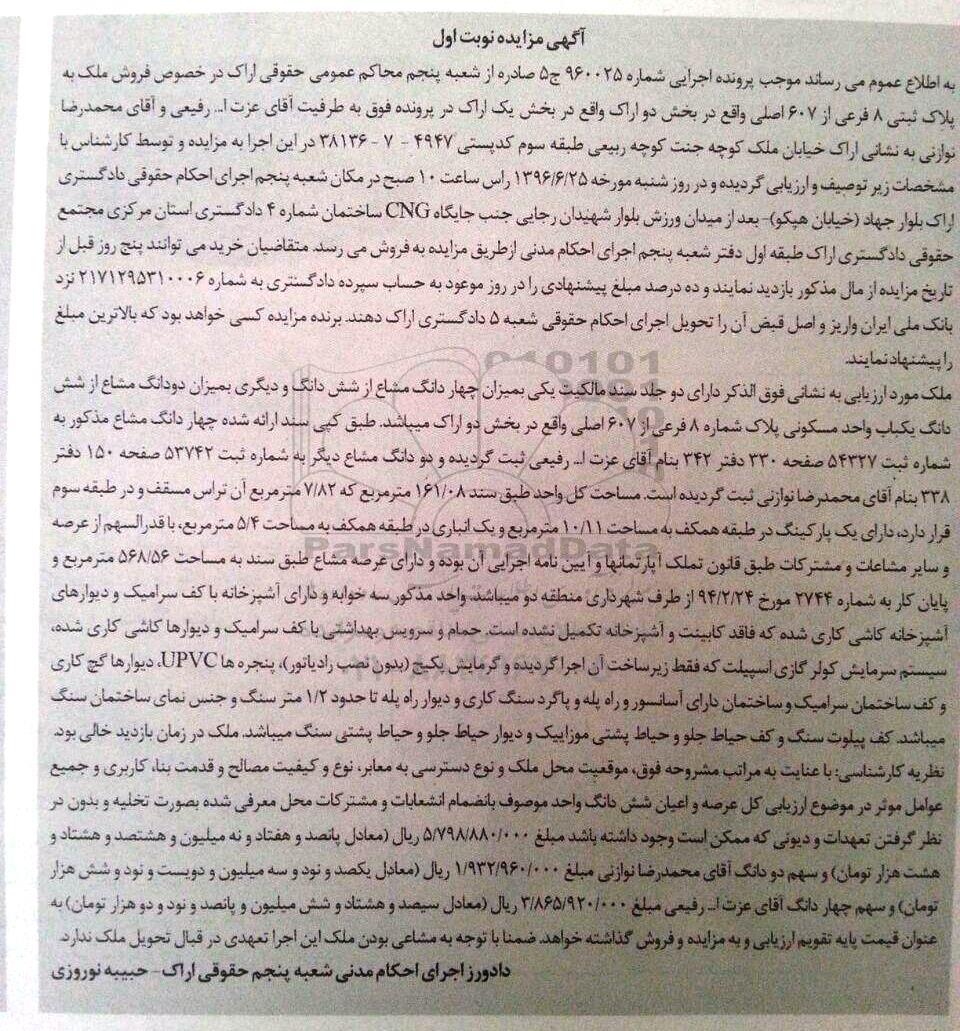 آگهی مزایده نوبت اول
به اطلاع عموم می رساند موجب پرونده اجرایی شماره ۹۶۰۰۲۵ ج۵ صادره از شعبه پنجم محاکم عمومی حقوقی اراک در خصوص فروش ملک به
پلاک ثبتی ۸ فرعی از ۶۰۷ اصلی واقع در بخش دو اراک واقع در بخش یک اراک در پرونده فوق به طرفیت آقای عزت ا... رفیعی و آقای محمدرضا
نوازنی به نشانی اراک خیابان ملک کوچه جنت کوچه ربیعی طبقه سوم کدپستی ۴۹۴۷ - ۷ - ۳۸۱۳۶ در این اجرا به مزایده و توسط کارشناس با
مشخصات زیر توصیف و ارزیابی گردیده و در روز شنبه مورخه ۱۳۹۶/۶/۲۵ راس ساعت ۱۰ صبح در مکان شعبه پنجم اجرای احکام حقوقی دادگستری
اراک بلوار جهاد (خیابان هپکو)- بعد از میدان ورزش بلوار شهیدان رجایی جنب جایگاه CNG ساختمان شماره ۴ دادگستری استان مرکزی مجتمع
حقوقی دادگستری اراک طبقه اول دفتر شعبه پنجم اجرای احکام مدنی ازطریق مزایده به فروش می رسد. متقاضیان خرید می توانند پنج روز قبل از
تاریخ مزایده از مال مذکور بازدید نمایند و ده درصد مبلغ پیشنهادی را در روز موعود به حساب سپرده دادگستری به شماره ۲۱۷۱۲۹۵۳۱۰۰۰۶ نزد
بانک ملی ایران واریز و اصل قبض آن را تحویل اجرای احکام حقوقی شعبه ۵ دادگستری اراک دهند. برنده مزایده کسی خواهد بود که بالاترین مبلغ
را پیشنهاد نمایند.
ملک مورد ارزیابی به نشانی فوق الذکر دارای دو جلد سند مالکیت یکی بمیزان چهار دانگ مشاع از شش دانگ و دیگری بمیزان دودانگ مشاع از شش
دانگ یکباب واحد مسکونی پلاک شماره ۸ فرعی از ۶۰۷ اصلی واقع در بخش دو اراک میباشد. طبق کپی سند ارائه شده چهار دانگ مشاع مذکور به
شماره ثبت ۵۴۳۲۷ صفحه ۳۳۰ دفتر ۳۴۲ بنام آقای عزت ا... رفیعی ثبت گردیده و دو دانگ مشاع دیگر به شماره ثبت ۵۳۷۴۲ صفحه ۱۵۰ دفتر
۳۳۸ بنام آقای محمدرضا نوازنی ثبت گردیده است. مساحت کل واحد طبق سند ۱۶۱/۰۸ مترمربع که ۷/۸۲ مترمربع آن تراس مسقف و در طبقه سوم
قرار دارد، دارای یک پارکینگ در طبقه همکف به مساحت ۱۰/۱۱ مترمربع و یک انباری در طبقه همکف به مساحت ۵/۴ مترمربع، با قدرالسهم از عرصه
و سایر مشاعات و مشترکات طبق قانون تملک آپارتمانها و آیین نامه اجرایی آن بوده و دارای عرصه مشاع طبق سند به مساحت ۵۶۸/۵۶ مترمربع و
پایان کار به شماره ۲۷۴۴ مورخ ۹۴/۲/۲۴ از طرف شهرداری منطقه دو میباشد. واحد مذکور سه خوابه و دارای آشپزخانه با کف سرامیک و دیوارهای
آشپزخانه کاشی کاری شده که فاقد کابینت و آشپزخانه تکمیل نشده است. حمام و سرویس بهداشتی با کف سرامیک و دیوارها کاشی کاری شده،
سیستم سرمایش کولر گازی اسپیلت که فقط زیرساخت آن اجرا گردیده و گرمایش پکیج (بدون نصب رادیاتور)، پنجره ها UPVC، دیوارها گچ کاری
و کف ساختمان سرامیک و ساختمان دارای آسانسور و راه پله و پاگرد سنگ کاری و دیوار راه پله تا حدود ۱/۲ متر سنگ و جنس نمای ساختمان سنگ
میباشد. کف پیلوت سنگ و کف حیاط جلو و حیاط پشتی موزاییک و دیوار حیاط جلو و حیاط پشتی سنگ میباشد. ملک در زمان بازدید خالی بود.
نظریه کارشناسی: با عنایت به مراتب مشروحه فوق، موقعیت محل ملک و نوع دسترسی به معابر، نوع و کیفیت مصالح و قدمت بنا، کاربری و جمیع
عوامل موثر در موضوع ارزیابی کل عرصه و اعیان شش دانگ واحد موصوف بانضمام انشعابات و مشترکات محل معرفی شده بصورت تخلیه و بدون در
نظر گرفتن تعهدات و دیونی که ممکن است وجود داشته باشد مبلغ ۵/۷۹۸/۸۸۰/۰۰۰ ریال (معادل پانصد و هفتاد و نه میلیون و هشتصد و هشتاد و
هشت هزار تومان) و سهم دو دانگ آقای محمدرضا نوازنی مبلغ ۱/۹۳۲/۹۶۰/۰۰۰ ریال (معادل یکصد و نود و سه میلیون و دویست و نود و شش هزار
تومان) و سهم چهار دانگ آقای عزت ا... رفیعی مبلغ ۳/۸۶۵/۹۲۰/۰۰۰ ریال (معادل سیصد و هشتاد و شش میلیون و پانصد و نود و دو هزار تومان) به
عنوان قیمت پایه تقویم ارزیابی و به مزایده و فروش گذاشته خواهد. ضمنا با توجه به مشاعی بودن ملک این اجرا تعهدی در قبال تحویل ملک ندارد.
دادورز اجرای احکام مدنی شعبه پنجم حقوقی اراک - حبیبه نوروزی
ParsNamadData